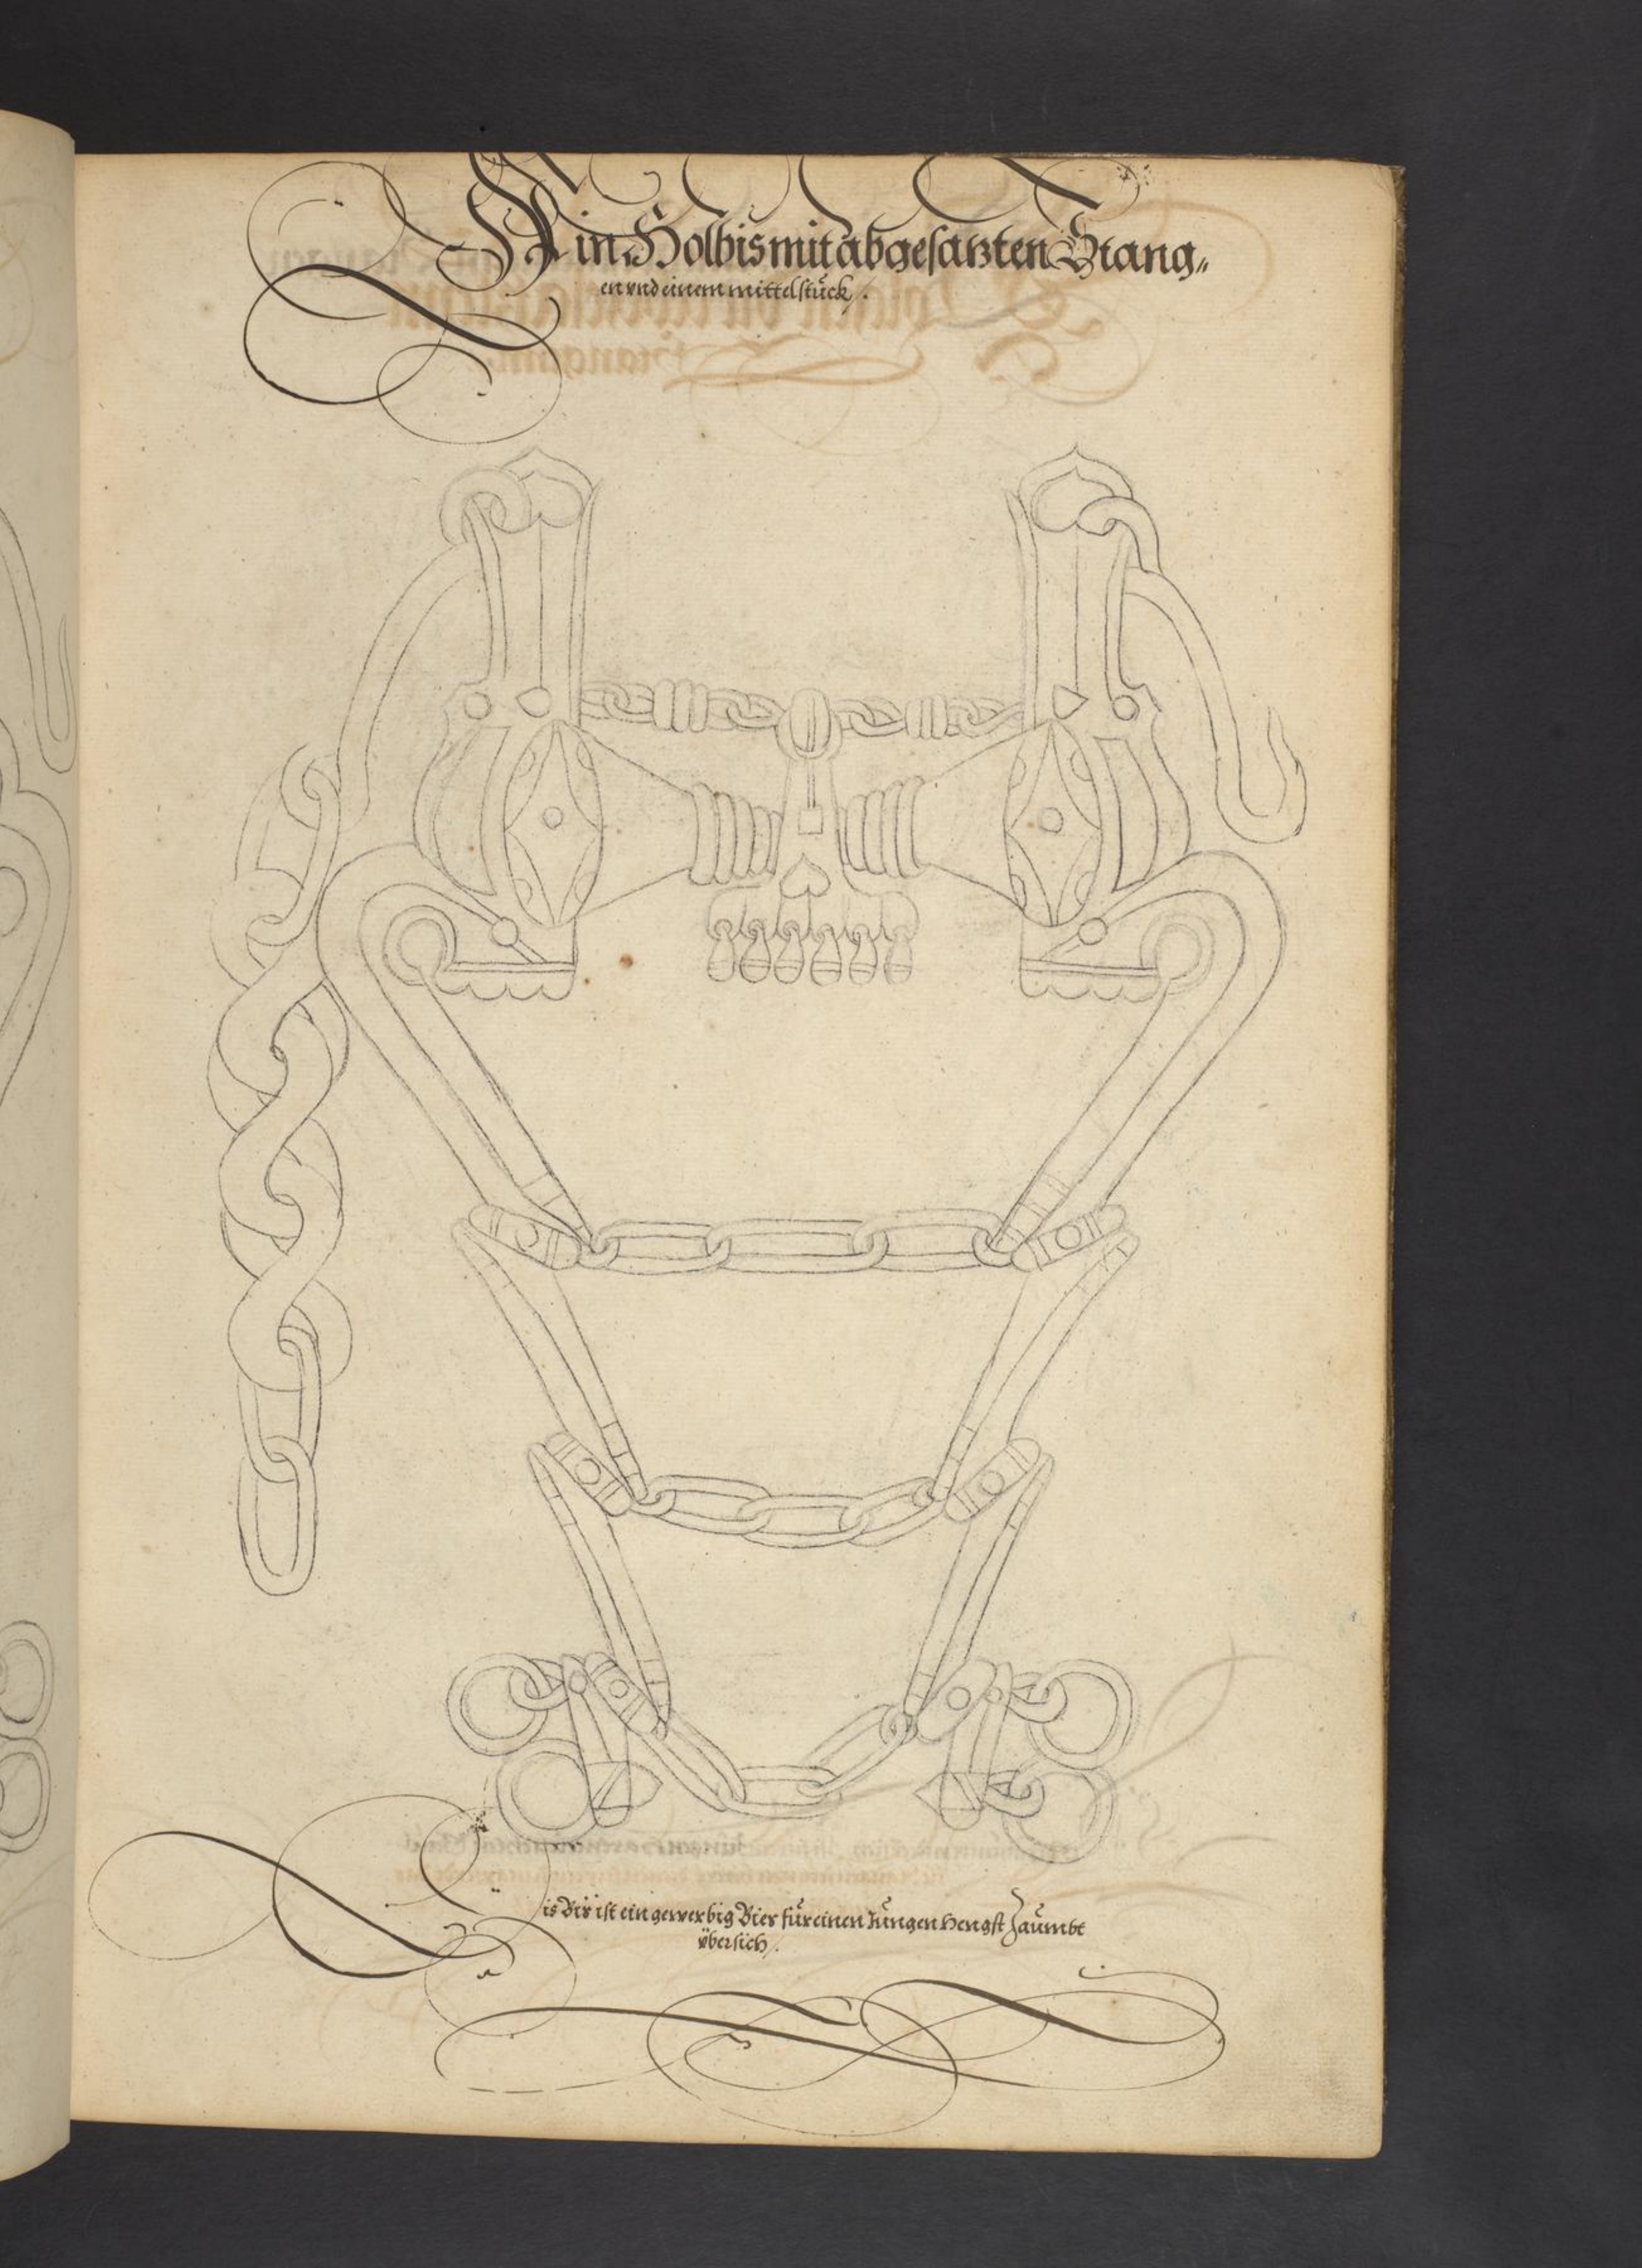 Ain Holbis mit abgesatzten Stang„
en vnd einem mittelstuck/.
is Bis ist ein gewerbig Bies fur einen Jungen Hengst Zaumbt
vbersich/.